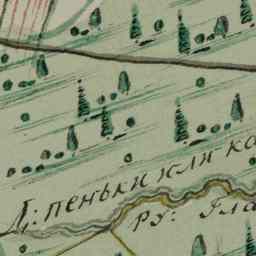 Д: пеньки или ка
РУ: Гла